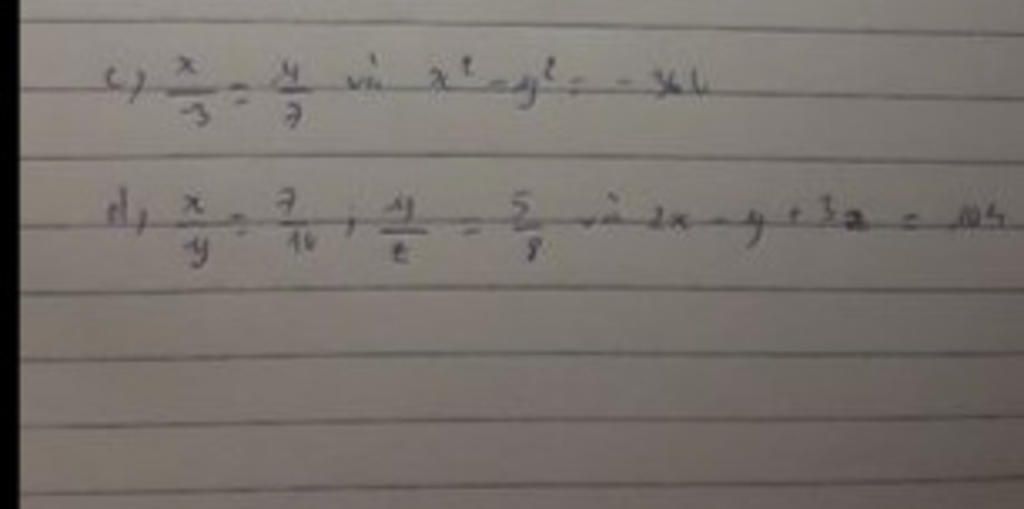 c) x/-3 = y/7 và x² - y² = -36
d) x/y = 7/10 ; y/z = 5/8 và 2x - y + 3z = 104